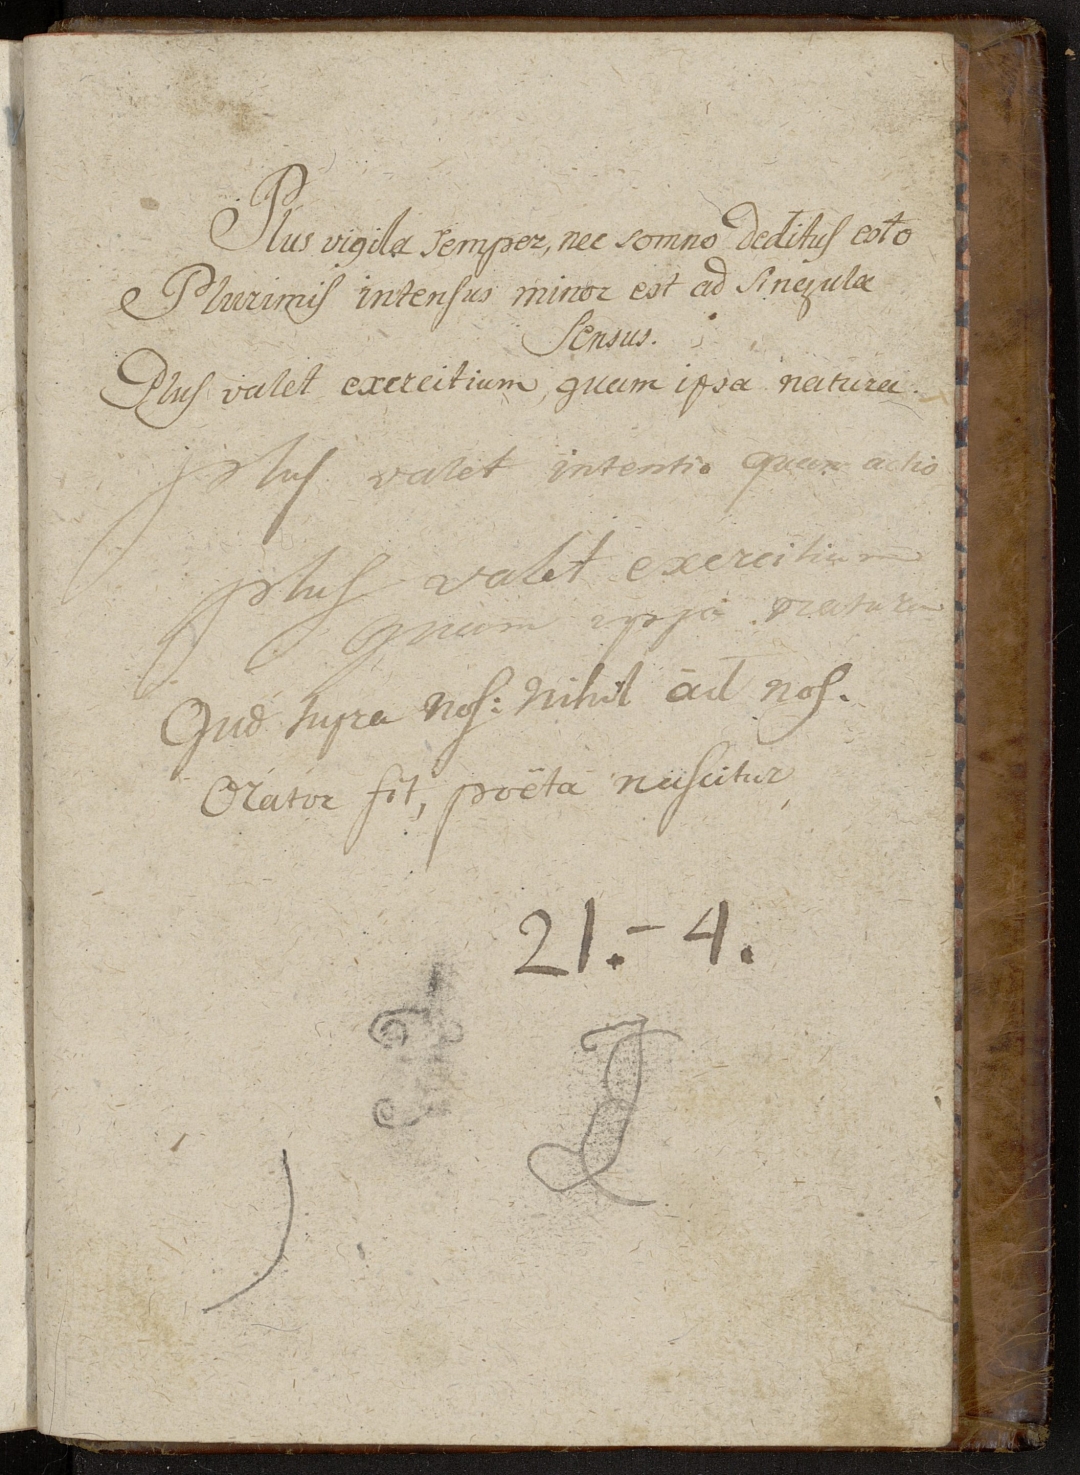 Plus vigila semper, nec somno deditus esto
Plurimis intensus minor est ad singula
Sensus.
Plus valet exercitium, quam ipsa natura.
plus valet intentio quam actio
plus valet exercitium
quam ipsa natura
Quae supra nos: Nihil ad nos.
Orator fit, poëta nascitur,
21.- 4.